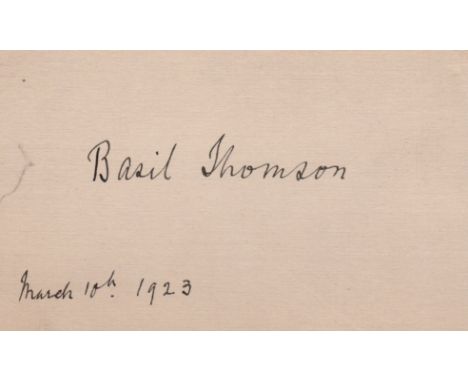 Basil Thomson
March 10th. 1923